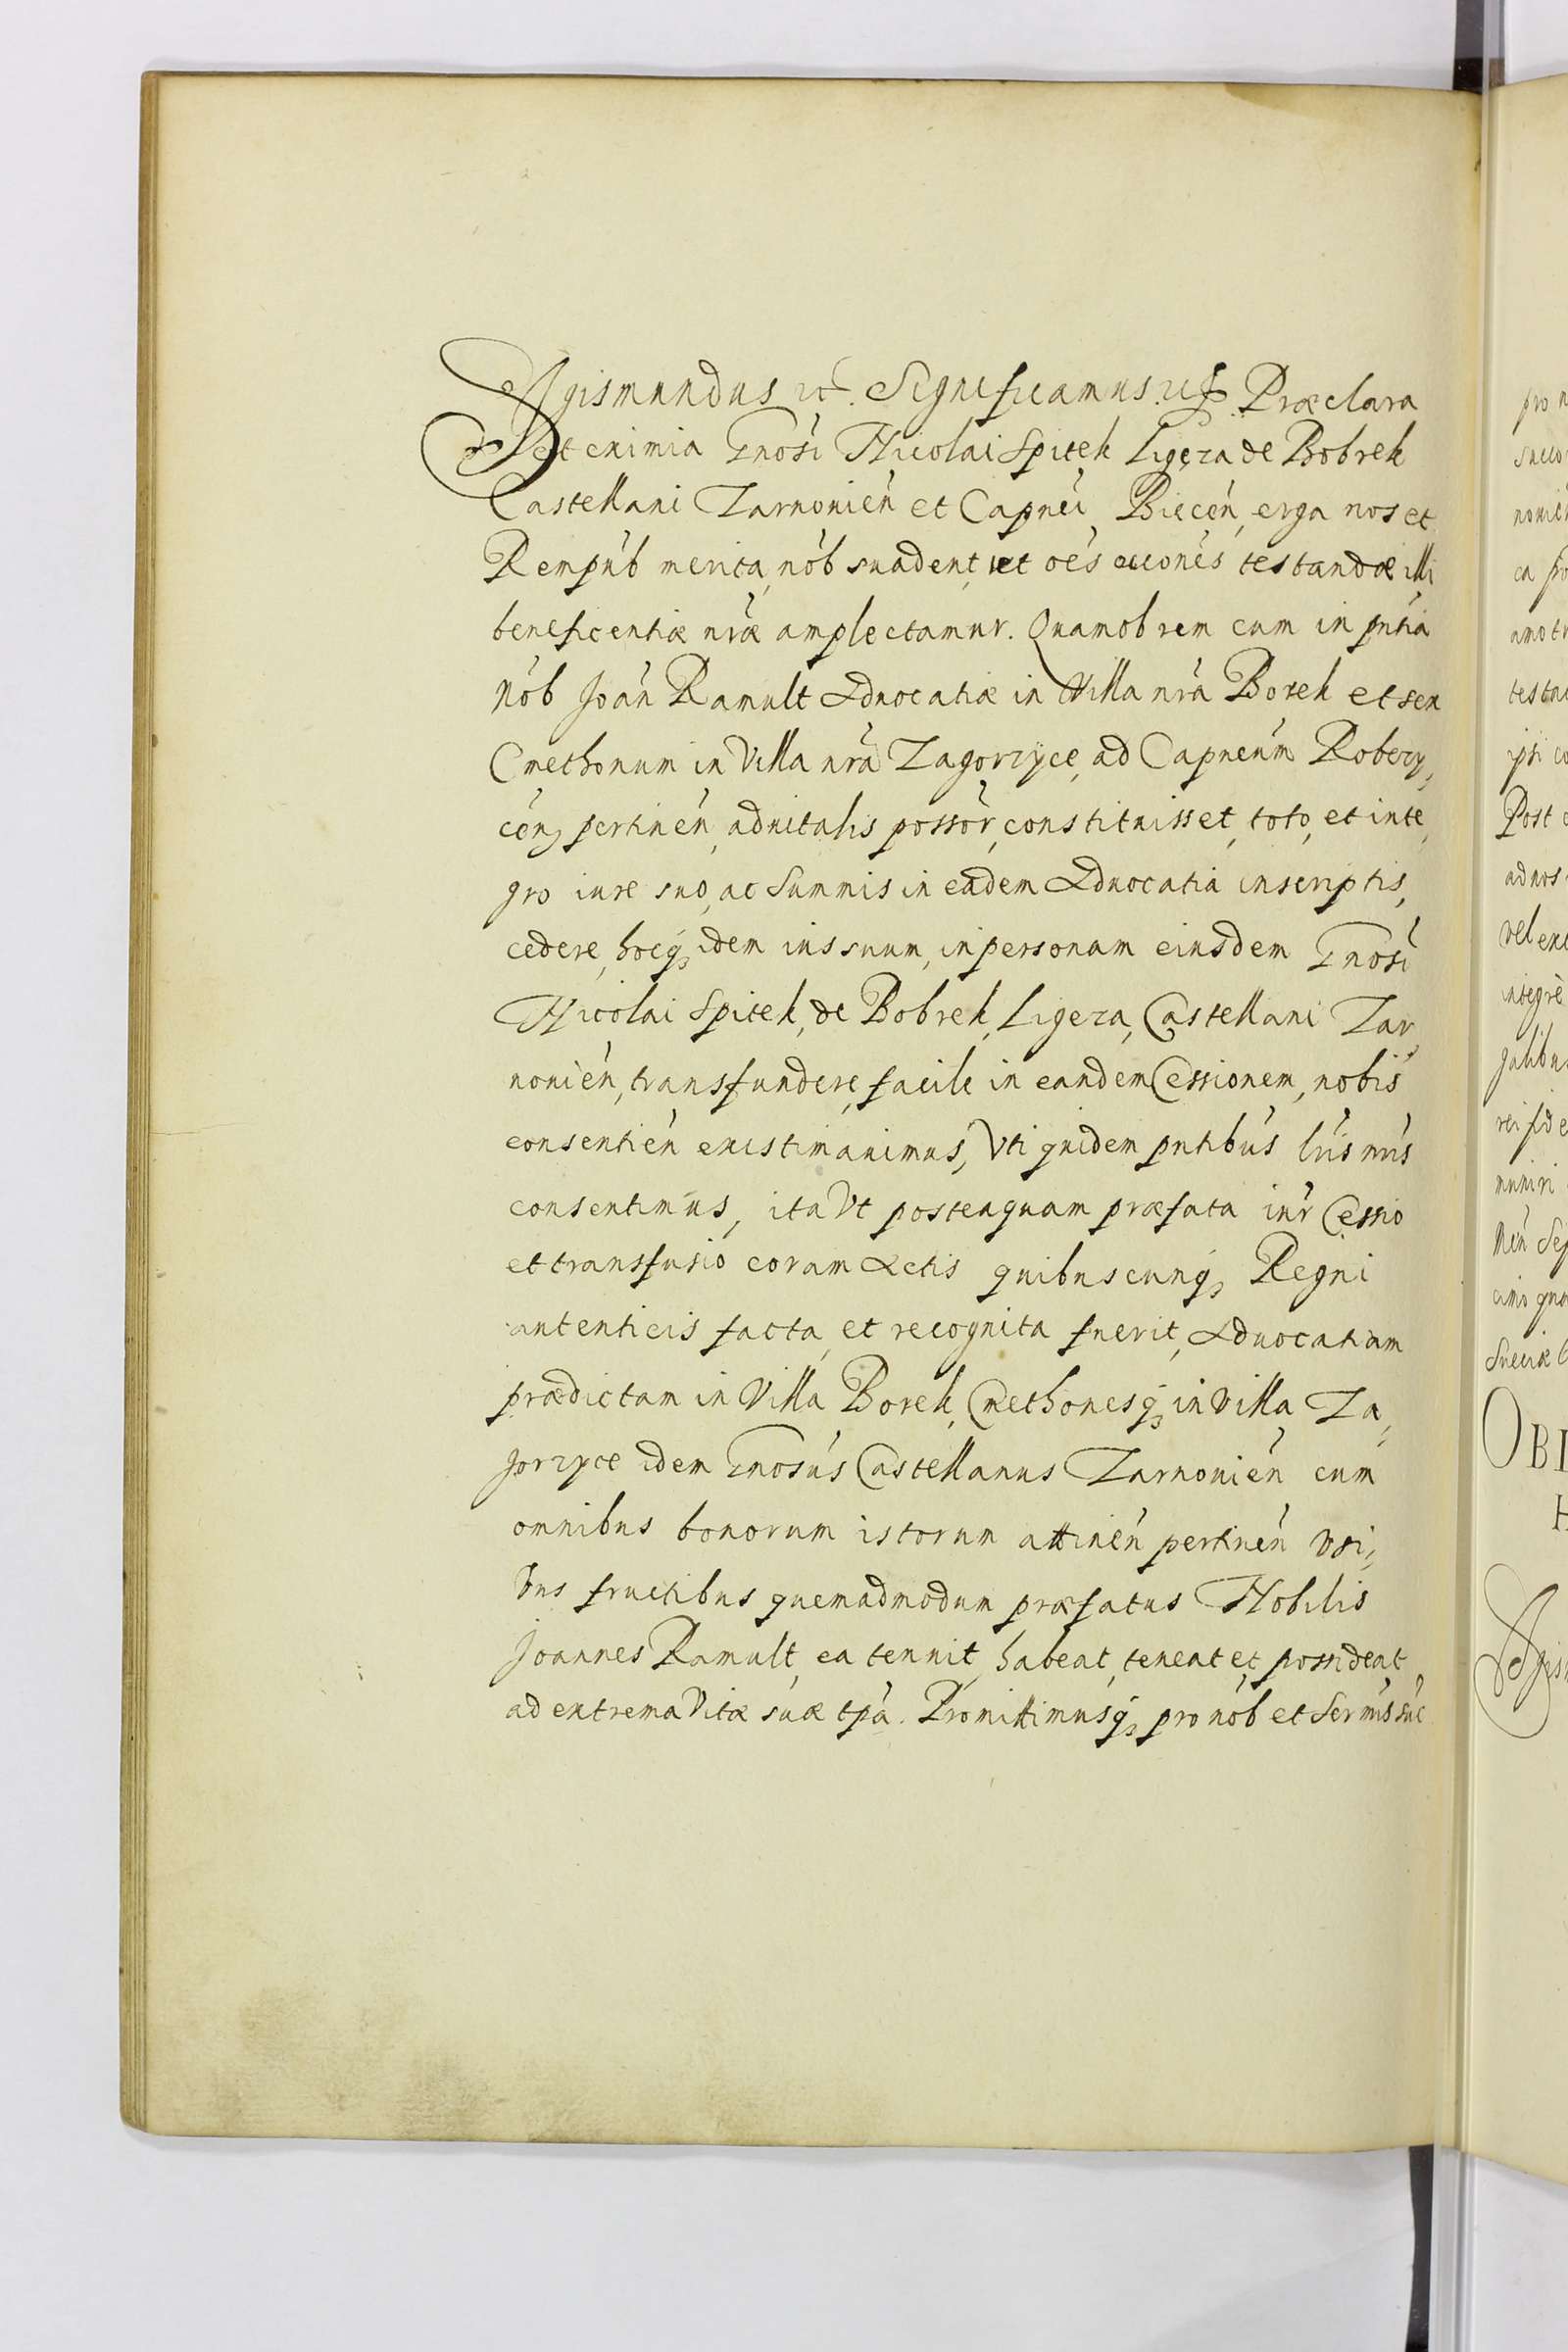 Sigismundus etc. Significamus etc. Præclara
et eximia Gnosi Nicolai Spitek Ligęza de Bobrek
Castellani Zarnouień et Capnei, Biecen, erga nos et
Rempub merita, nob suadent, ut oes occones testandæ illi
beneficentiæ nræ amplectamur. Quamobrem cum in pntia
Nob Joan Ramult Aduocatiæ in Villa nra Borek et sex
Cmethonum in Villa nra Zagorzyce, ad Capneum Robczy,
cen, pertinen, aduitalis possor, constituisset, toto, et inte,
gro iure suo, ac Summis in eadem Aduocatia inscriptis,
cedere, hocq, idem ius suum, in personam eiusdem Gnosi
Nicolai Spitek, de Bobrek, Ligeza, Castellani Zar,
nouien, transfundere, facile in eandem Cessionem, nobis
consentien existimauimus, Vti quidem pntibus lris nris
consentimus, ita Vt posteaquam præfata iur Cessio
et transfusio coram Actis quibuscunq, Regni
autenticis facta, et recognita fuerit, Aduocatiam
prædictam in Villa Borek, Cmethonesq, in Villa Za,
gorzyce idem Gnosus Castellanus Zarnouien cum
omnibus bonorum istorum attinen pertinen Vsi,
bus fructibus quemadmodum præfatus Nobilis
Joannes Ramult, ea tenuit, habeat, teneat et possideat
ad extrema Vitæ suæ tpa. Promittimusq, pro nob et Ser nris suc
pro n
succo
nouien
ca pro
amotu
testa
ipsi co
Post
ad nos
vel ex
integrè
galibu
rei fide
muniri
Men Sep
cimo qua
Sueciæ
OBI
H
Sigis